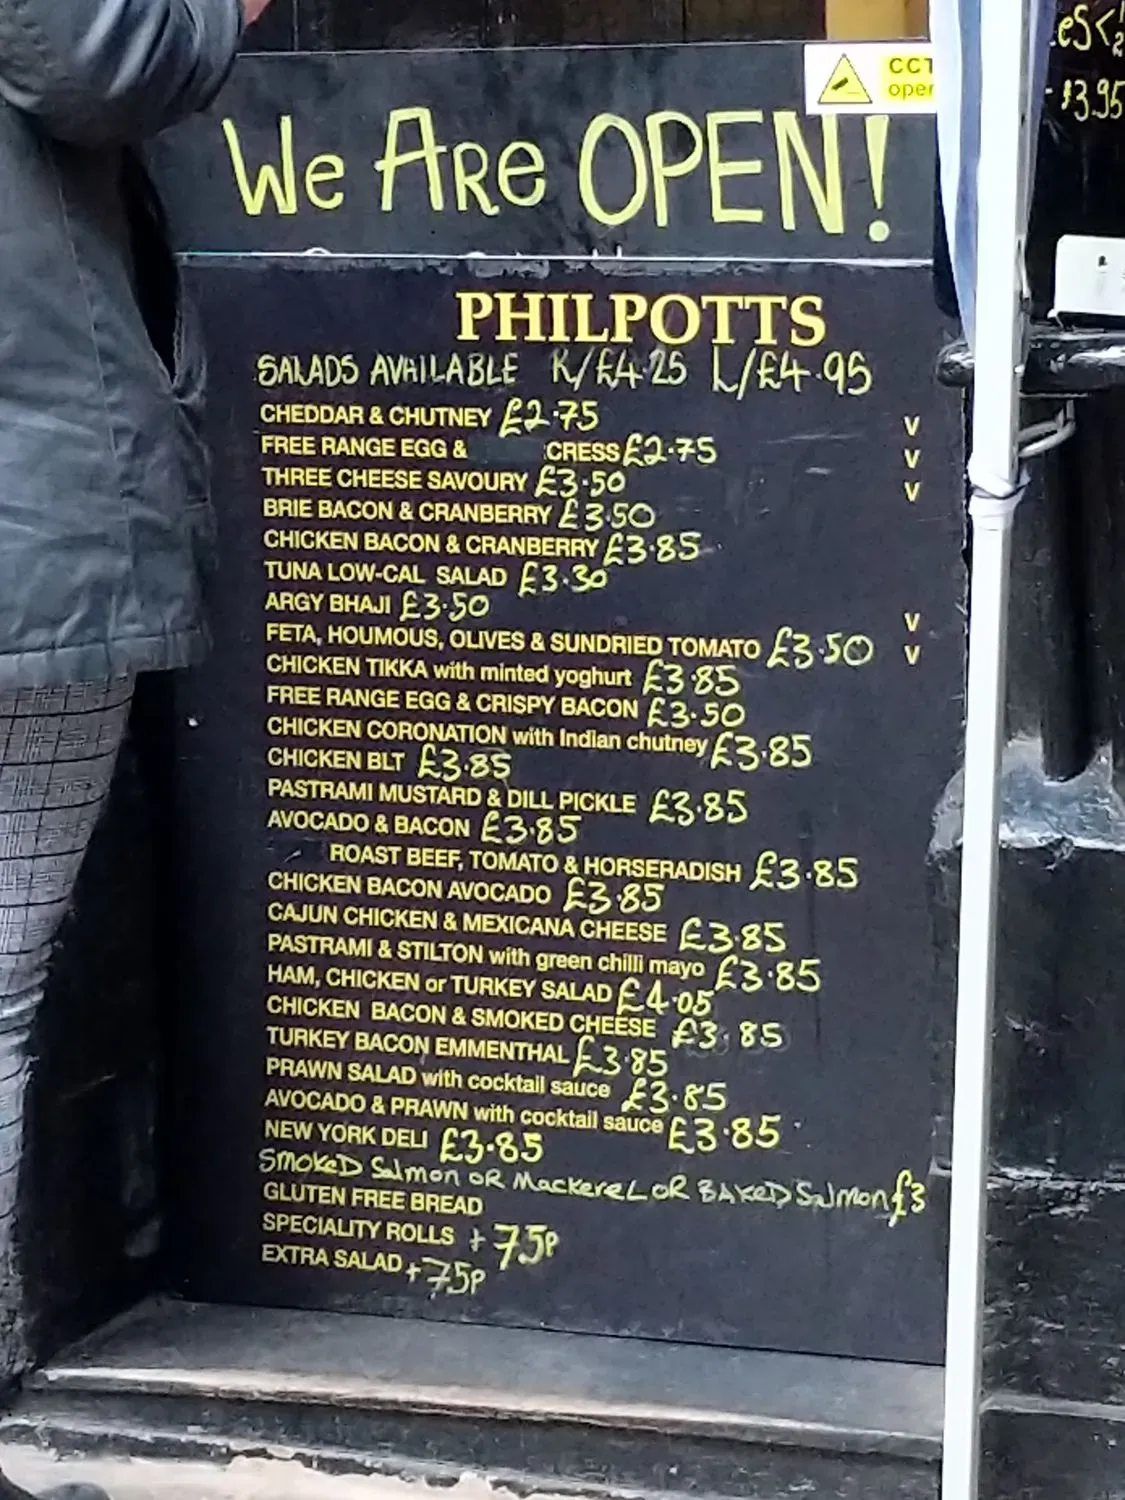 CCT
oper
es<
£3.95
We Are OPEN!
PHILPOTTS
SALADS AVAILABLE R/£4.25 L/£4.95
CHEDDAR & CHUTNEY £2.75 V
FREE RANGE EGG & CRESS £2.75 V
THREE CHEESE SAVOURY £3.50 V
BRIE BACON & CRANBERRY £3.50
CHICKEN BACON & CRANBERRY £3.85
TUNA LOW-CAL SALAD £3.30
ARGY BHAJI £3.50 V
FETA, HOUMOUS, OLIVES & SUNDRIED TOMATO £3.50 V
CHICKEN TIKKA with minted yoghurt £3.85
FREE RANGE EGG & CRISPY BACON £3.50
CHICKEN CORONATION with Indian chutney £3.85
CHICKEN BLT £3.85
PASTRAMI MUSTARD & DILL PICKLE £3.85
AVOCADO & BACON £3.85
ROAST BEEF, TOMATO & HORSERADISH £3.85
CHICKEN BACON AVOCADO £3.85
CAJUN CHICKEN & MEXICANA CHEESE £3.85
PASTRAMI & STILTON with green chilli mayo £3.85
HAM, CHICKEN or TURKEY SALAD £4.05
CHICKEN BACON & SMOKED CHEESE £3.85
TURKEY BACON EMMENTHAL £3.85
PRAWN SALAD with cocktail sauce £3.85
AVOCADO & PRAWN with cocktail sauce £3.85
NEW YORK DELI £3.85
SMOKED SALMON OR MACKEREL OR BAKED SALMON £3
GLUTEN FREE BREAD
SPECIALITY ROLLS +75P
EXTRA SALAD +75P